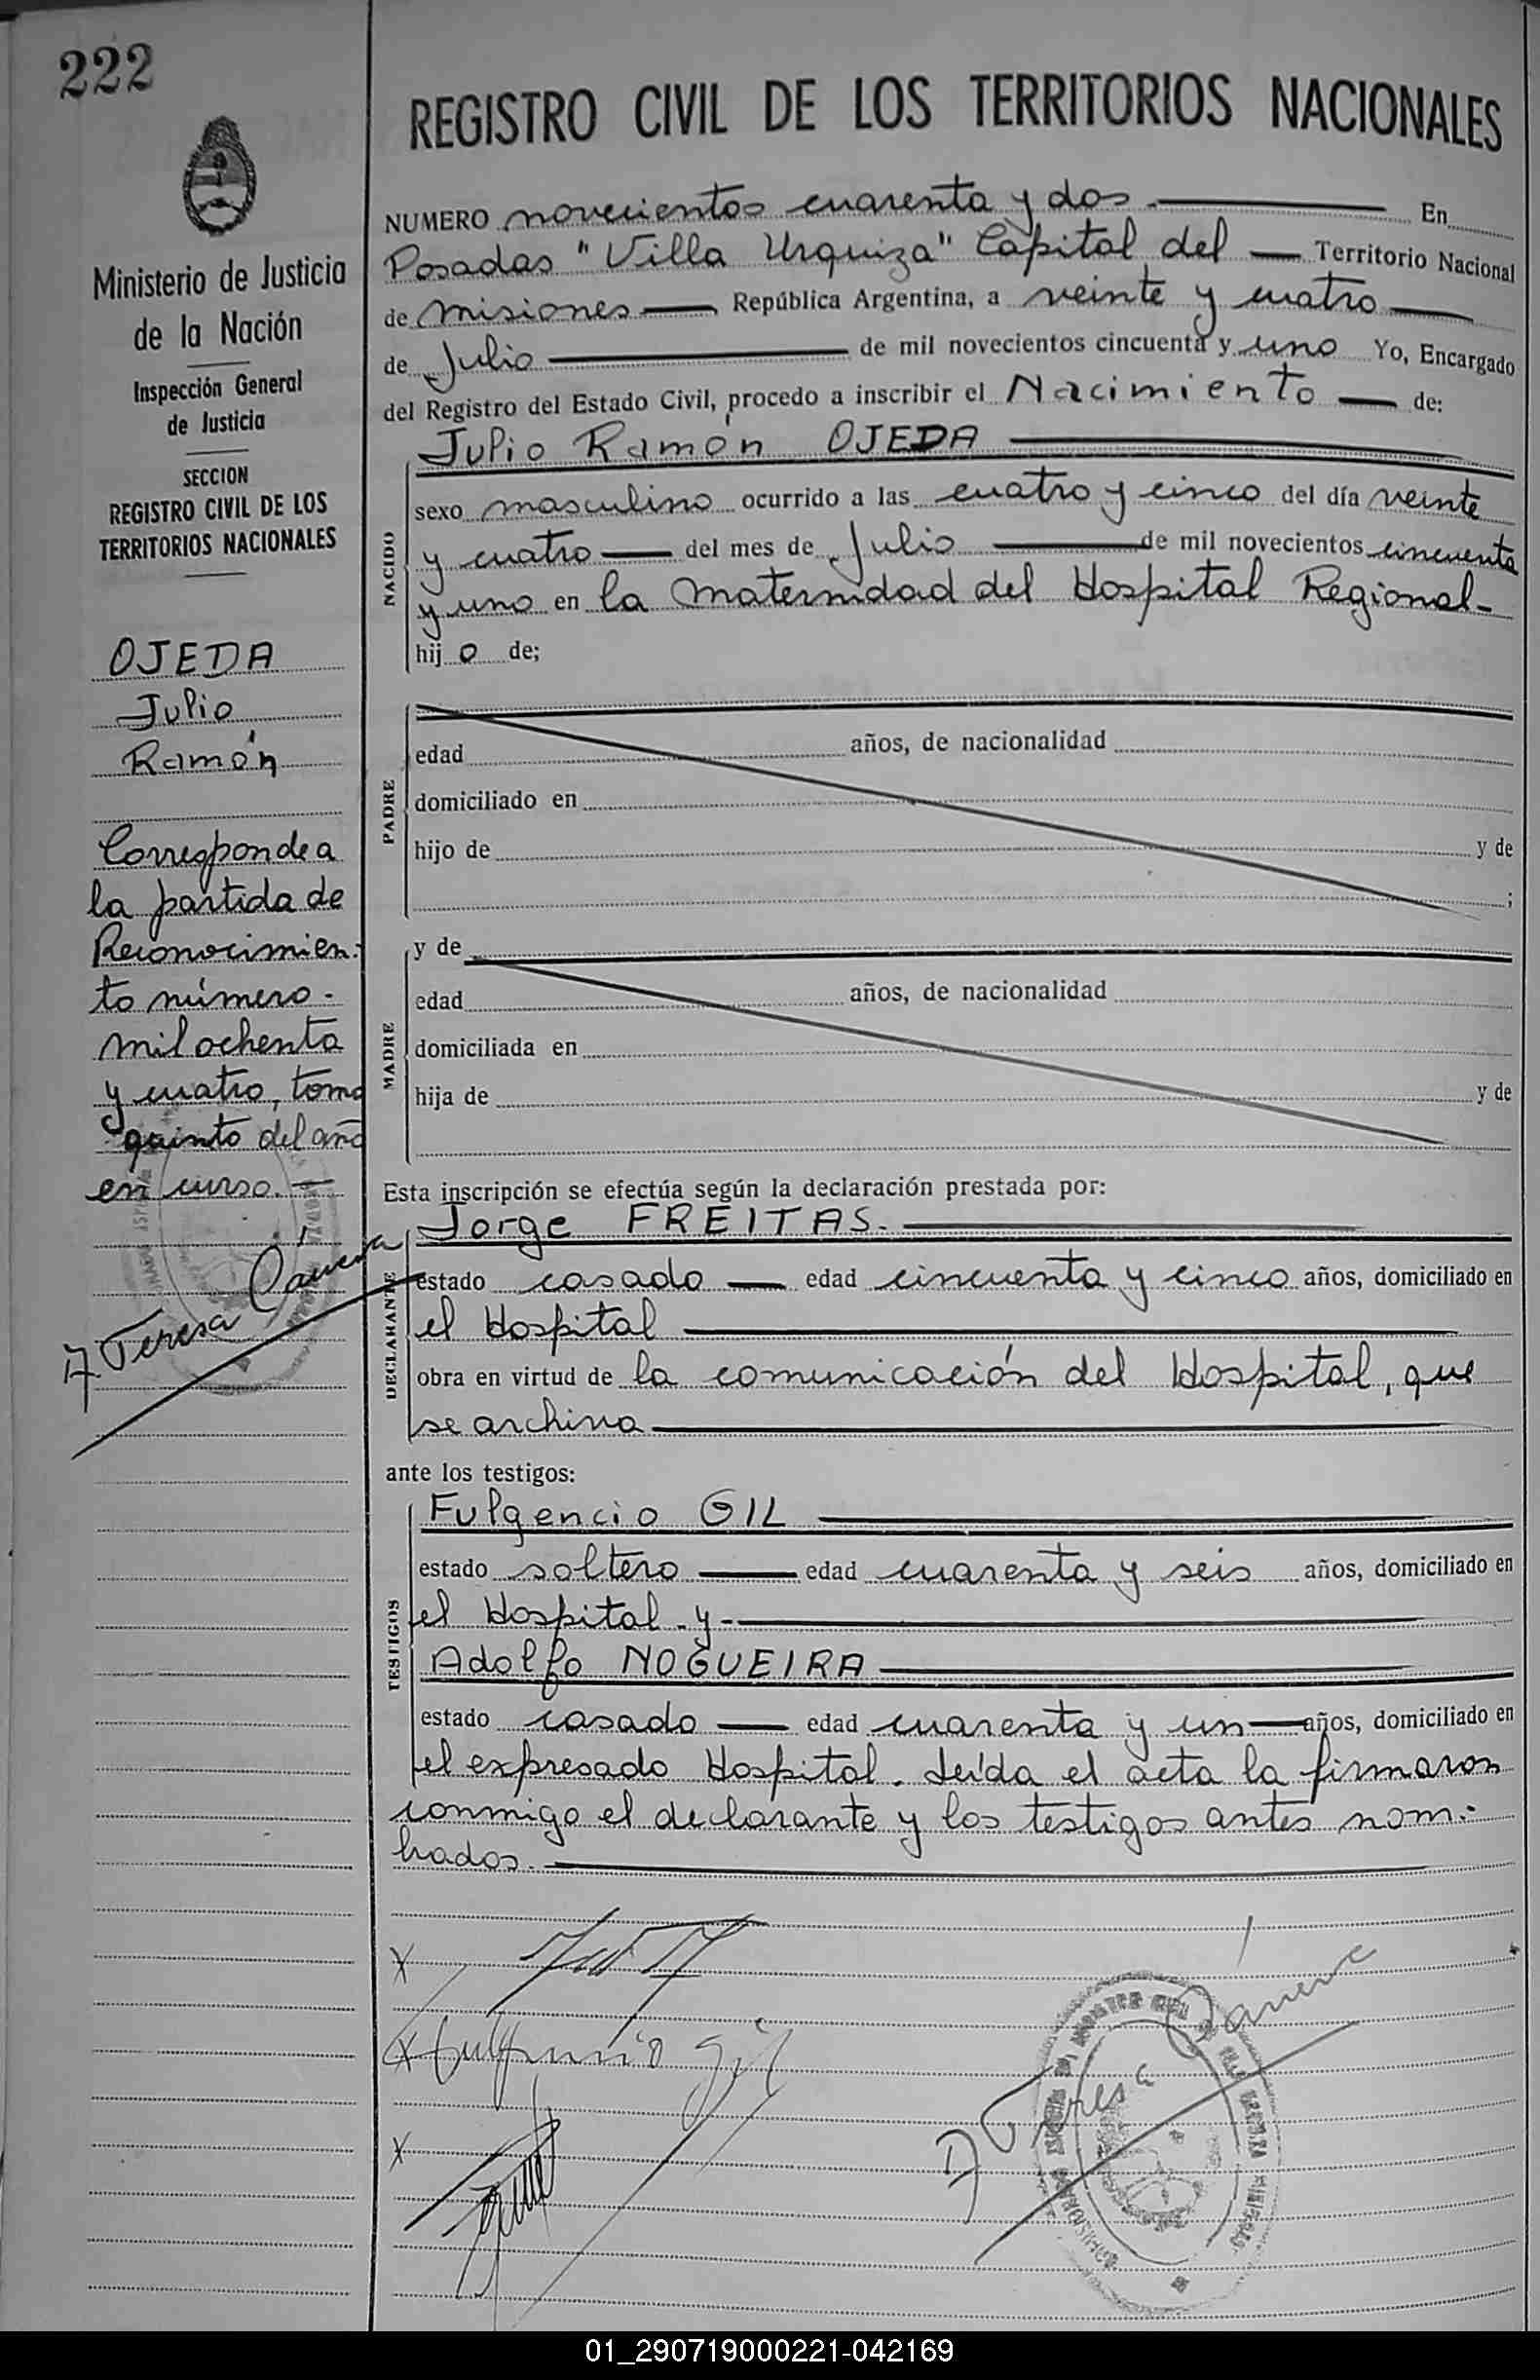 222
REGISTRO CIVIL DE LOS TERRITORIOS NACIONALES
Ministerio de Justicia
de la Nación
Inspección General
de Justicia
SECCION
REGISTRO CIVIL DE LOS
TERRITORIOS NACIONALES
OJEDA
Julio
Ramón
Corresponde a
la partida de
Reconocimien-
to número-
mil ochenta
y cuatro, tomo
quinto del año
en curso.—
A Teresa Cánena
NUMERO novecientos cuarenta y dos.— En
Posadas "Villa Urquiza" Capital del — Territorio Nacional
de misiones — República Argentina, a veinte y cuatro —
de Julio — de mil novecientos cincuenta y uno Yo, Encargado
del Registro del Estado Civil, procedo a inscribir el Nacimiento — de:
Julio Ramón OJEDA —
NACIDO
sexo masculino ocurrido a las cuatro y cinco del día veinte
y cuatro — del mes de Julio — de mil novecientos cincuenta
y uno en la maternidad del Hospital Regional-
hij o de;
PADRE
edad años, de nacionalidad
domiciliado en
hijo de y de
;
MADRE
y de
edad años, de nacionalidad
domiciliada en
hija de y de
Esta inscripción se efectúa según la declaración prestada por:
Jorge FREITAS.—
DECLARANTE
estado casado — edad cincuenta y cinco años, domiciliado en
el Hospital —
obra en virtud de la comunicación del Hospital, que
se archiva —
ante los testigos:
TESTIGOS
Fulgencio GIL —
estado soltero — edad cuarenta y seis años, domiciliado en
el Hospital - y -—
Adolfo NOGUEIRA —
estado casado — edad cuarenta y un — años, domiciliado en
el expresado Hospital. Leída el acta la firmaron
conmigo el declarante y los testigos antes nom-
brados.—
x
x Fulgencio Gil
x
A Teresa Cánena
01_290719000221-042169